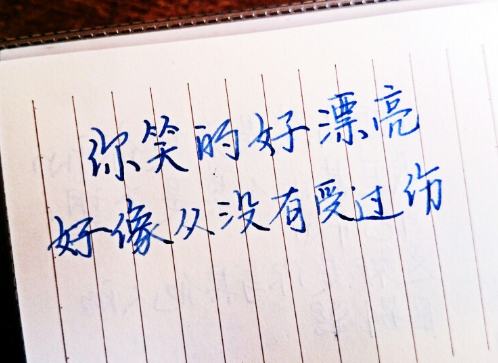 你笑的好漂亮
好像从没有受过伤